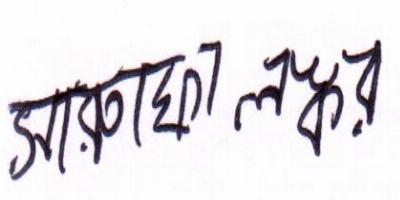 সারতাফা লস্কর